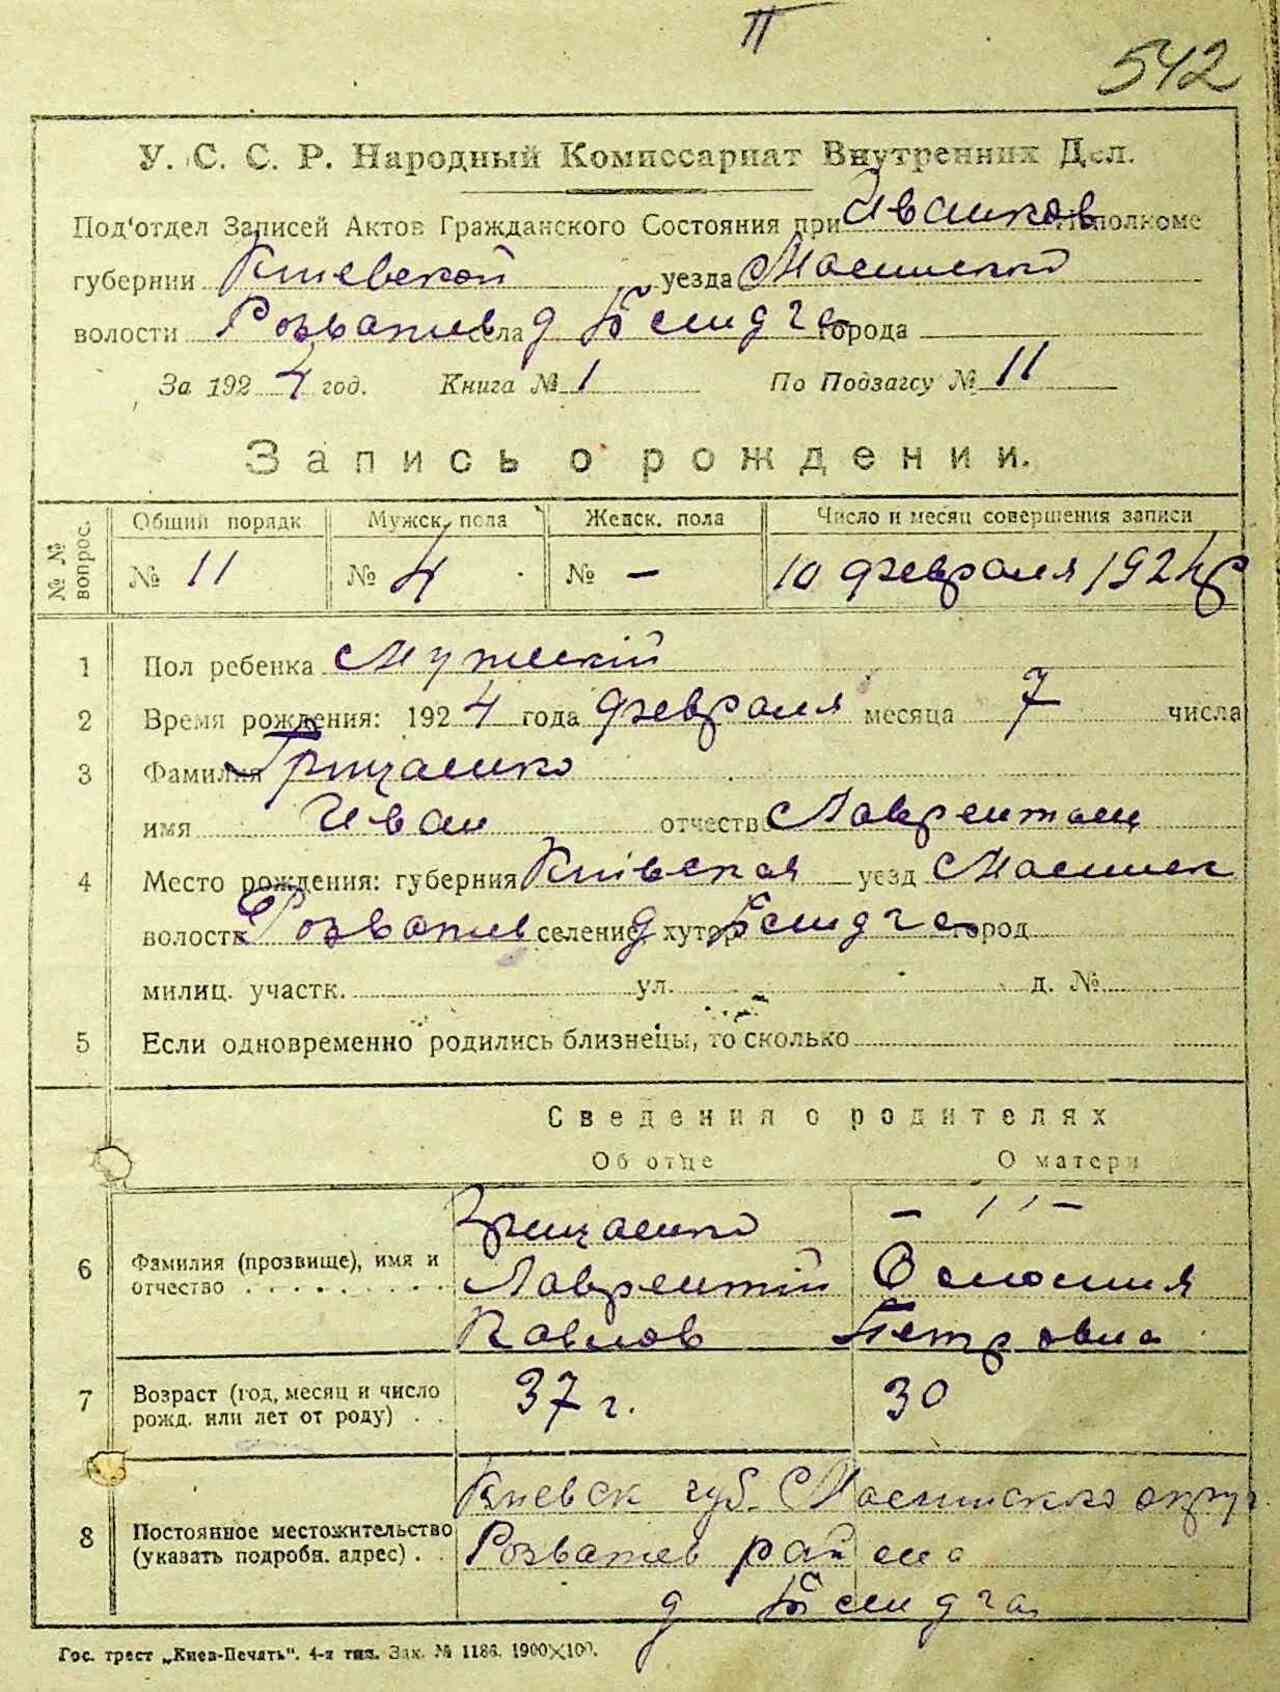 П
542
У. С. С. Р. Народный Комиссариат Внутренних Дел.
Под'отдел Записей Актов Гражданского Состояния при Иванков Исполкоме
губернии Киевской уезда
волости Розважев села д города
За 1924 год. Книга № 1 По Подзагсу № 11
Запись о рождении.
№ № вопрос.
Общий порядк Мужск. пола Женск. пола Число и месяц совершения записи
№ 11 № 4 № — 10 февраля 1924 р
1 Пол ребенка Мужскій
2 Время рождения: 1924 года февраля месяца 7 числа
3 Фамилия Грищенко
имя Иван отчество
4 Место рождения: губерния Киівская уезд
волость Розважев селение д хутор город
милиц. участк. ул. д. №
5 Если одновременно родились близнецы, то сколько
Сведения о родителях
Об отце О матери
6 Фамилия (прозвище), имя и отчество
Грищенко — '' —
Лаврентій
Павлов Петровна
7 Возраст (год, месяц и число рожд. или лет от роду) . . 37 г. 30
8 Постоянное местожительство (указать подробн. адрес) . .
Киевск губ. округ
Розважев района
д
Гос. трест „Киев-Печать". 4-я тип. Зак. № 1186. 1900×100.